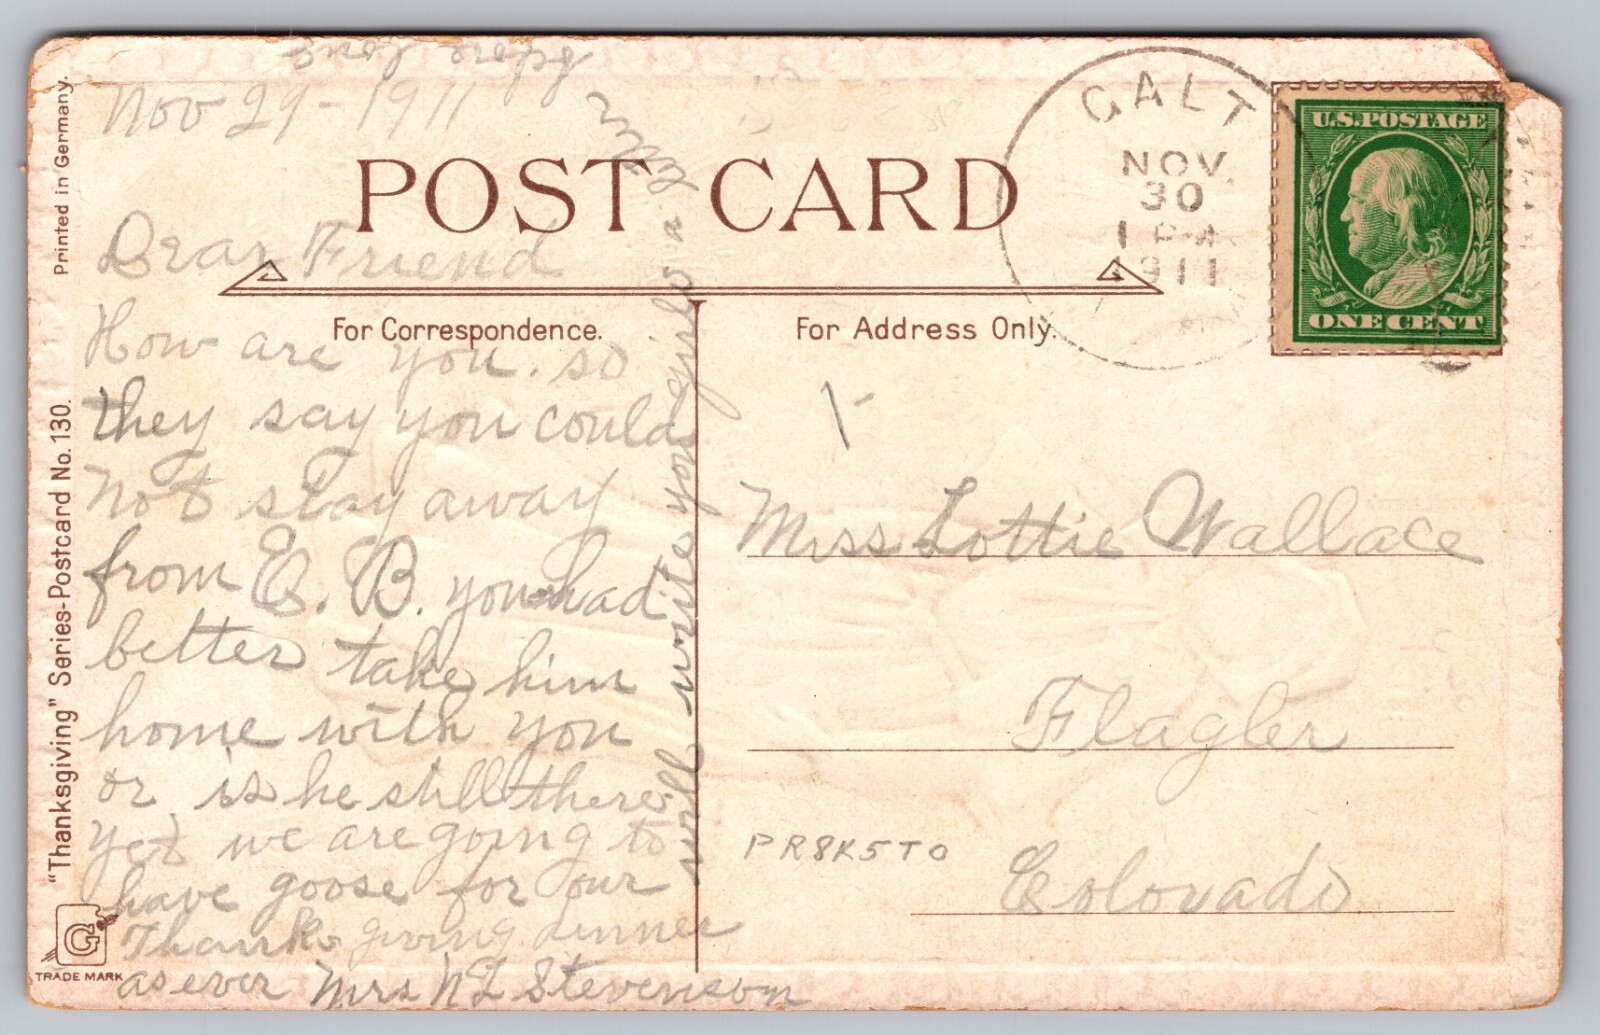 Nov 29-1911
POST CARD
Dear Friend
For Correspondence.
How are you. so
they say you could
Not stay away
from E. B. you had
better take him
home with you
or is he still there
yet we are going to
have goose for our
Thanks giving dinner
as ever Mrs N L Stevenson
will write you girls a letter
before long
For Address Only.
Miss Lottie Wallace
Flagler
Colorado
PR8K5TO
GALT
NOV.
30
1 PM
1911
U.S.POSTAGE
ONE CENT
Printed in Germany.
"Thanksgiving" Series-Postcard No. 130.
G
TRADE MARK